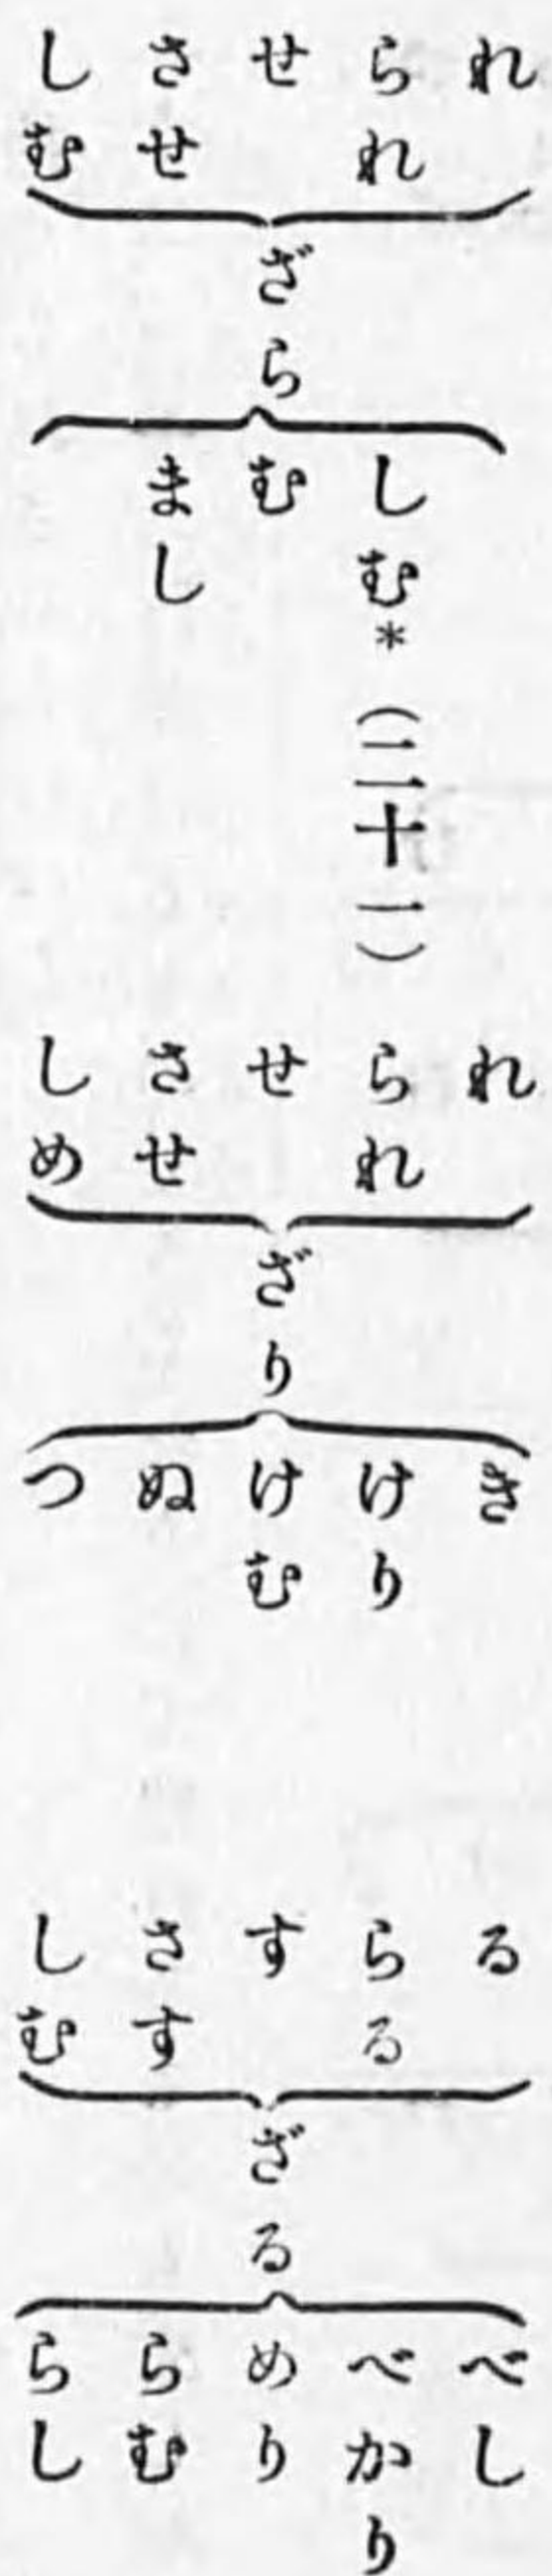 れ
られ
せ
させ
しむ
ざら
しむ*(二十一)
む
まし
れ
られ
せ
させ
しめ
ざり
き
けり
けむ
ぬ
つ
る
らる
す
さす
しむ
ざる
べし
べかり
めり
らむ
らし